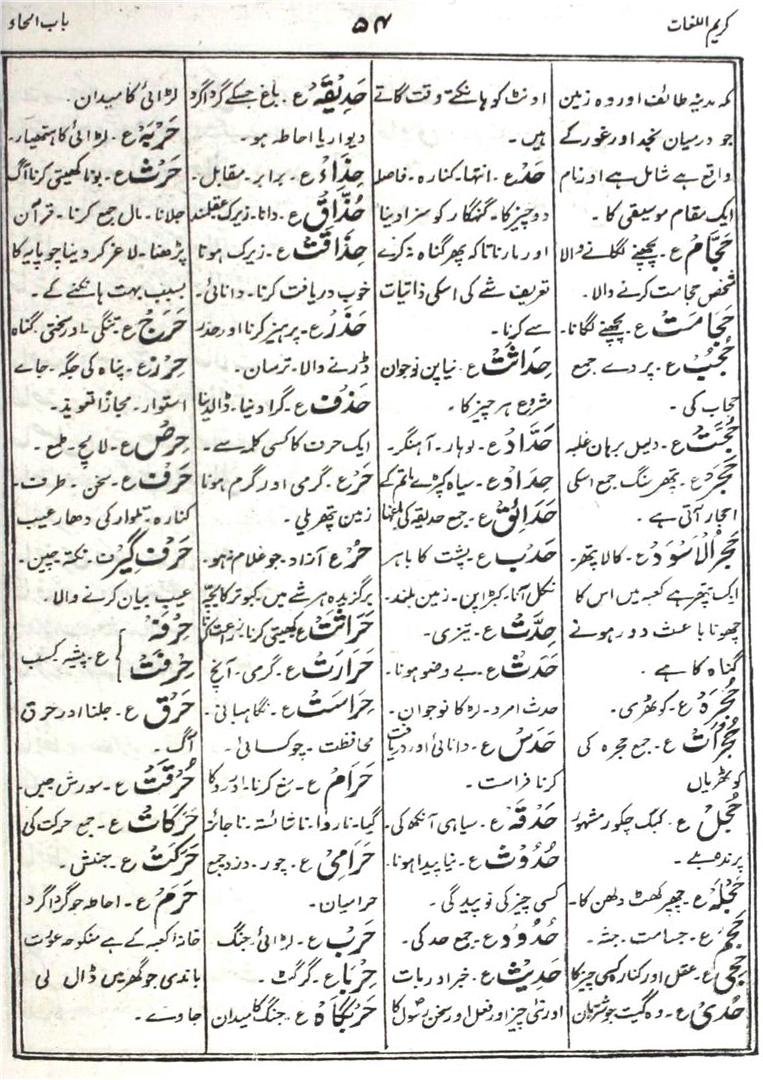 کریم اللغات
۵۴
باب الحاء
کہ مدینہ طائف اور وہ زمین
جو درمیان نجد اور غور کے
واقع ہے شامل ہے اور نام
ایک مقام موسیقی کا ۔
حَجَّام ع ۔ پچھنے لگانے والا
شخص حجامت کرنے والا ۔
حَجَامَت ع ۔ پچھنے لگانا ۔
حُجُب ع ۔ پردے جمع
حجاب کی ۔
حُجَّت ع ۔ دلیل برہان غلبہ
حَجَر ع ۔ پتھر سنگ جمع اسکی
احجار آتی ہے ۔
حَجَرُالْاَسْوَد ع ۔ کالا پتھر ۔
ایک پتھر ہے کعبہ میں اس کا
چھونا باعث دور ہونے
گناہ کا ہے ۔
حُجْرَہ ع ۔ کوٹھری ۔
حُجُرَات ع ۔ جمع حجرہ کی
کوٹھریاں
حَجَل ع ۔ کبک چکور مشہور
پرندہ ہے ۔
حَجْلَہ ع ۔ چھپرکھٹ دلھن کا ۔
حَجْم ع ۔ جسامت ۔ جثہ ۔
حِجیٰ ع ۔ عقل اور کنارہ کسی چیز کا
حُدیٰ ع ۔ وہ گیت جو شتربان
اونٹ کو ہانکتے وقت گاتے
ہیں ۔
حَد ع ۔ انتہا ۔ کنارہ ۔ فاصل
دو چیز کا ۔ گنہگار کو سزا دینا
اور مارنا تاکہ پھر گناہ نہ کرے
تعریف شے کی اسکی ذاتیات
سے کرنا ۔
حَدَاثَت ع ۔ نیا پن نوجوان
شروع ہر چیز کا ۔
حَدَّاد ع ۔ لوہار ۔ آہنگر ۔
حِدَاد ع ۔ سیاہ کپڑے ماتم کے
حَدَائِق ع ۔ جمع حدیقہ کی
حَدَب ع ۔ پشت کا باہر
نکل آنا ۔ کبڑا پن ۔ زمین بلند ۔
حِدَّت ع ۔ تیزی ۔
حَدَث ع ۔ بے وضو ہونا ۔
حدث امرد ۔ لڑکا نوجوان ۔
حَدَس ع ۔ دانائی اور دریافت
کرنا فراست ۔
حَدَقَہ ع ۔ سیاہی آنکھ کی ۔
حُدُوْث ع ۔ نیا پیدا ہونا ۔
کسی چیز کی نو پیدگی ۔
حُدُوْد ع ۔ جمع حد کی ۔
حَدِیْث ع ۔ خبر اور بات
اور نئی چیز اور فعل اور سخن رسول کا
حَدِیْقَہ ع ۔ باغ جسکے گرداگرد
دیوار یا احاطہ ہو ۔
حِذَاء ع ۔ برابر ۔ مقابل ۔
حُذَّاق ع ۔ دانا ۔ زیرک عقلمند
حِذَاقَت ع ۔ زیرک ہونا
خوب دریافت کرنا ۔ دانائی ۔
حَذَر ع ۔ پرہیز کرنا اور حذر
ڈرنے والا ۔ ترسان ۔
حَذْف ع ۔ گرا دینا ۔ ڈالدینا
ایک حرف کا کسی کلمہ سے ۔
حَر ع ۔ گرمی اور گرم ہونا
زمین پتھریلی ۔
حُر ع آزاد جو غلام نہو ۔
برگزیدہ ہر شے میں کبوتر کا بچّہ
حَرَاثَت ع کھیتی کرنا زراعت
حَرَارَت ع ۔ گرمی ۔ آنچ
حِرَاسَت ع ۔ نگاہبانی ۔
محافظت ۔ چوکسائی ۔
حَرَام ع ۔ منع کرنا ۔ اور روکا
گیا ۔ ناروا ۔ ناشائستہ ۔ ناجائز
حَرَامِی ع ۔ چور ۔ دزد جمع
حرامیان ۔
حَرْب ع ۔ لڑائی جنگ
حِرْبَا ع ۔ گرگٹ ۔
حَرْبگَاہ ع ۔ جنگ کا میدان
لڑائی کا میدان ۔
حَرْبَہ ع ۔ لڑائی کا ہتھیار ۔
حَرْث ع ۔ بونا کھیتی کرنا آگ
جلانا ۔ مال جمع کرنا ۔ قرآن
پڑھنا ۔ لاغر کر دینا چوپایہ کا
بسبب بہت ہانکنے کے ۔
حَرَج ع ۔ تنگی اور سختی ۔ گناہ
حِرْز ع ۔ پناہ کی جگہ ۔ جاے
استوار ۔ مجازاً تعویذ ۔
حِرْص ع ۔ لالچ ۔ طمع ۔
حَرْف ع ۔ سخن ۔ طرف ۔
کنارہ ۔ تلوار کی دھار عیب
حَرْف گِیْر ف ۔ نکتہ چین ۔
عیب بیان کرنے والا ۔
حِرْفَہ
حِرْفَت } ع ۔ پیشہ کسب
حَرْق ع ۔ جلنا اور حرق
آگ ۔
حُرْقَت ع ۔ سوزش جلن ۔
حَرَکَات ع ۔ جمع حرکت کی
حَرَکَت ع ۔ جنبش ۔
حَرَم ع ۔ احاطہ جو گرداگرد
خانۂ کعبہ کے ہے منکوحہ عورت
باندی جو گھر میں ڈال لی
جاوے ۔